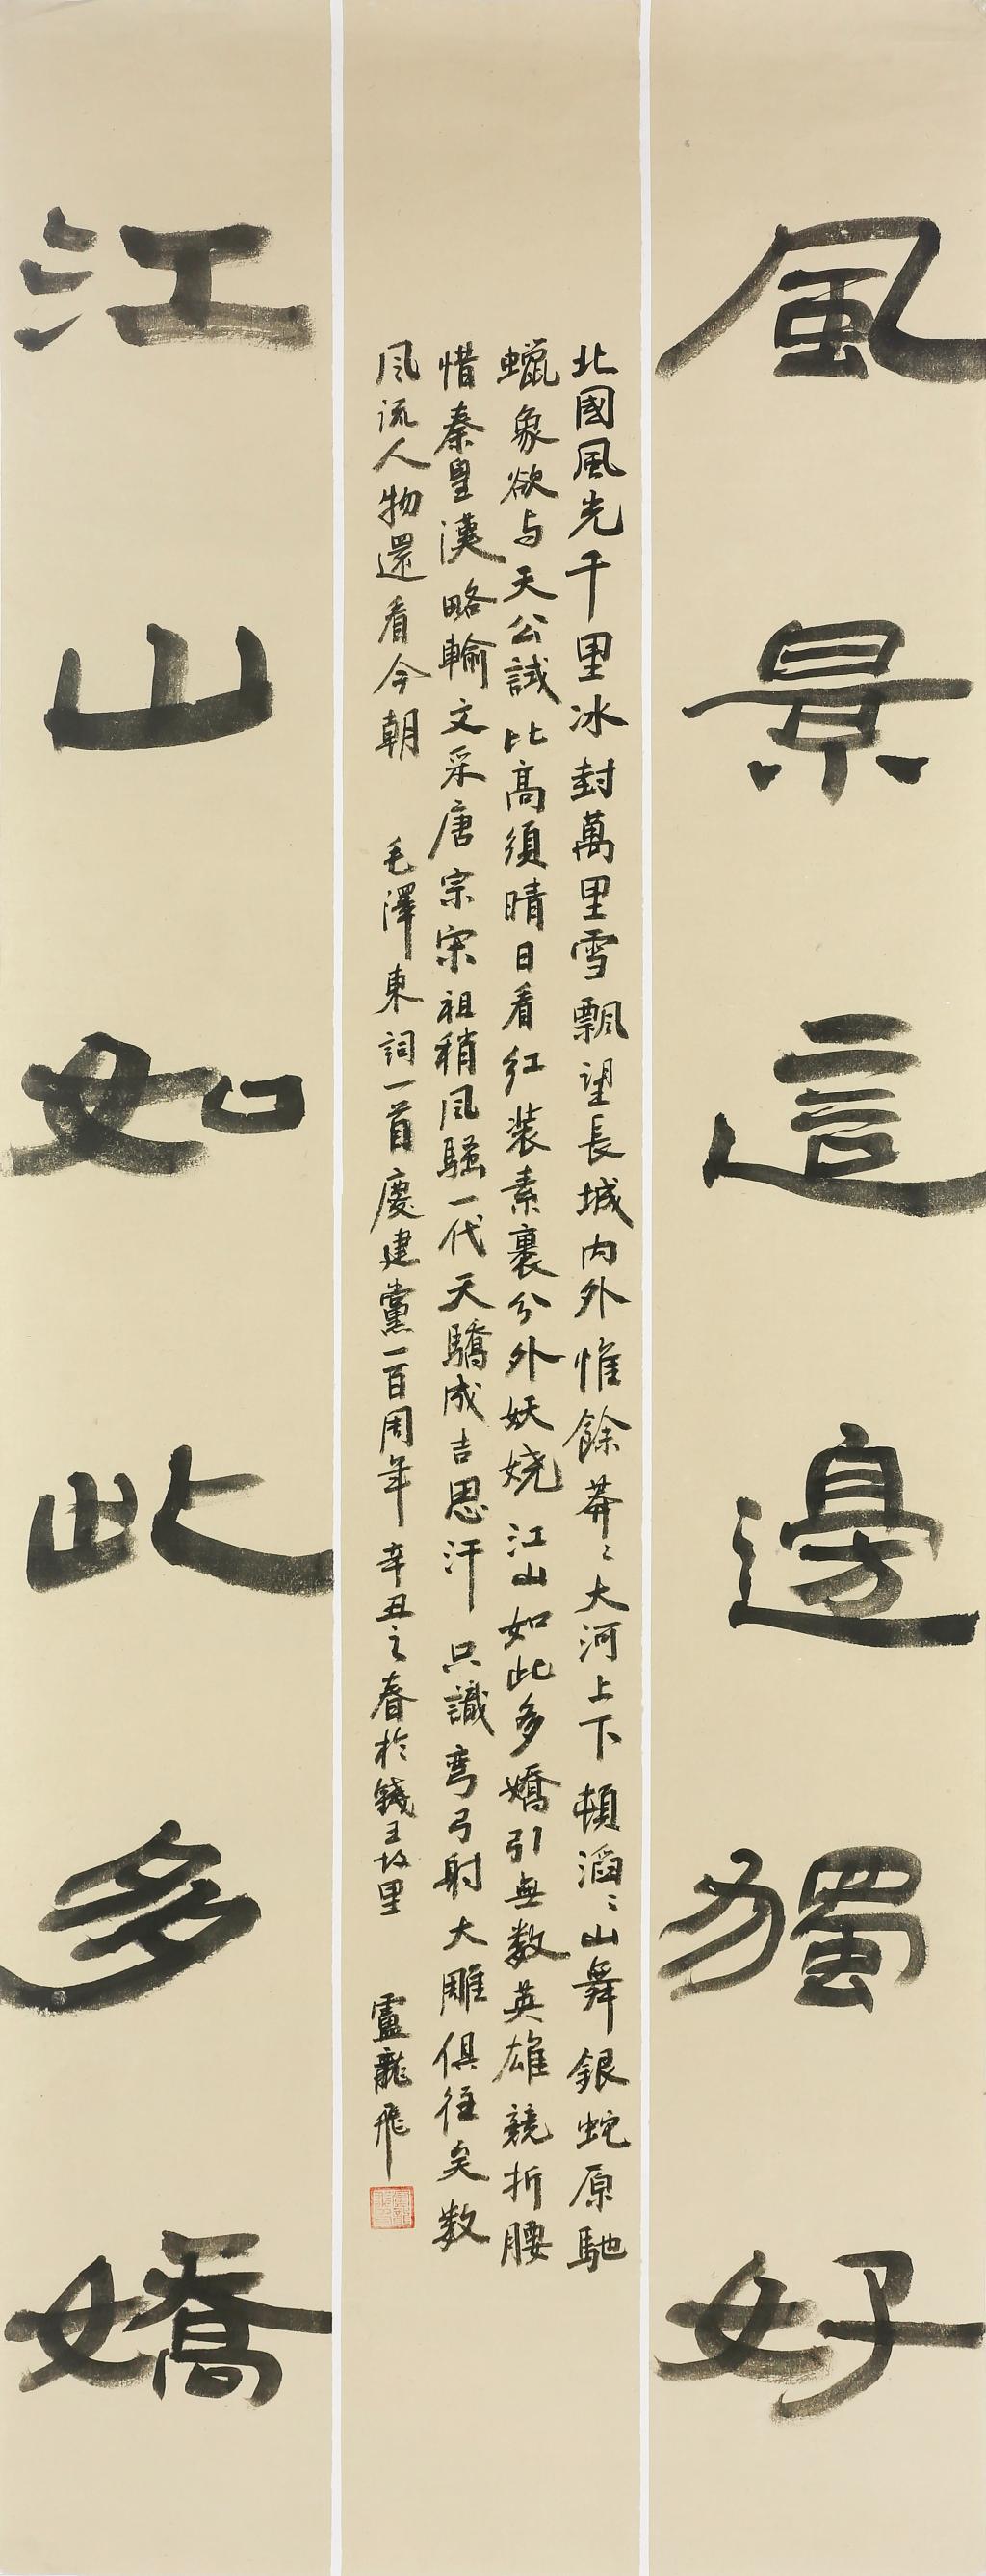 風景這邊獨好
北國風光千里冰封萬里雪飄望長城內外惟餘莽〻大河上下頓滔〻山舞銀蛇原馳
蠟象欲与天公試比高須晴日看红装素裹分外妖娆江山如此多嬌引無数英雄競折腰
惜秦皇漢略輸文采唐宗宋祖稍风騷一代天驕成吉思汗只識弯弓射大雕俱往矣数
风流人物還看今朝 毛澤東詞一首慶建黨一百周年辛丑之春於錢王故里 盧龍飛
江山如此多嬌